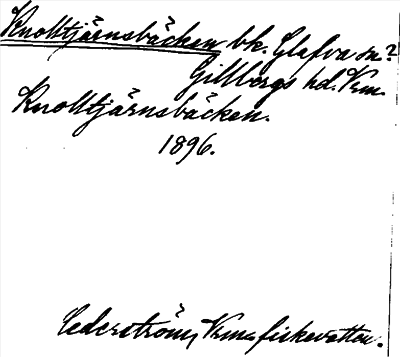 Knolltjärnsbäcken bk. Glafva sn?
Gillbergs hd. Vrm.
Knolltjärnsbäcken.
1896.
Cederström, Vrms fiskevatten.